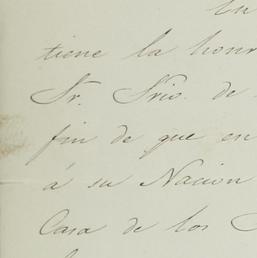 tiene la honr
Sr. Srio. de
fin de que en
á su Nacion
Casa de los